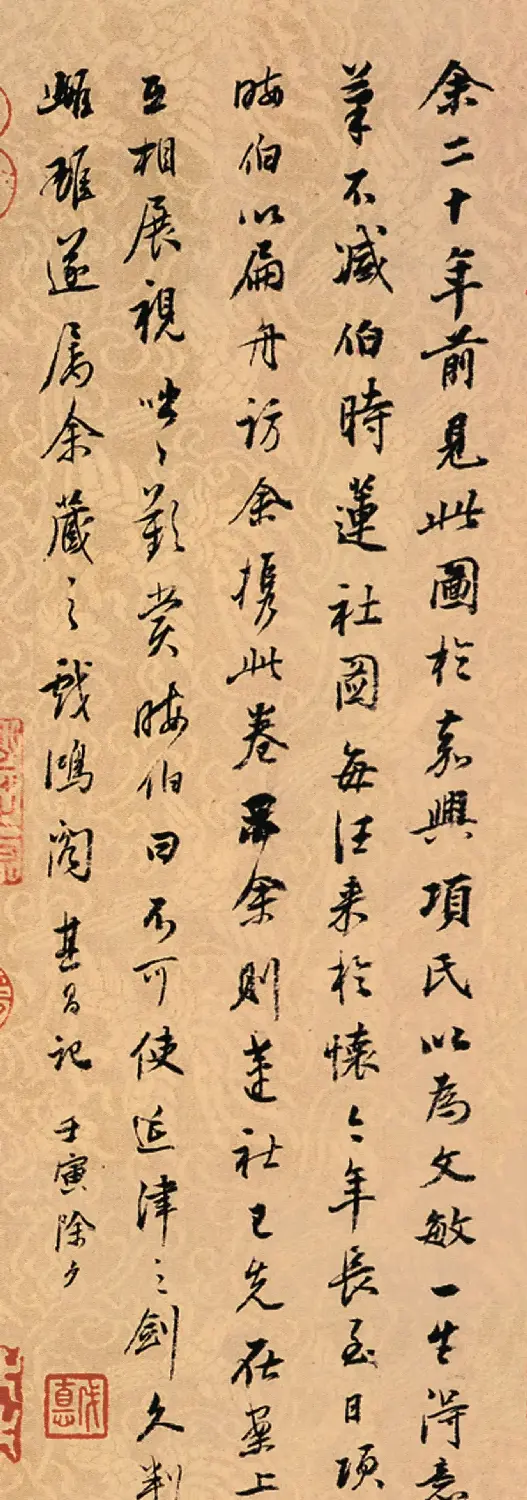 余二十年前見此圖於嘉興項氏以為文敏一生得意
筆不減伯時蓮社圖每汪来於懷今年長至日項
晦伯以扁舟訪余携此卷示余則蓮社已先在案上
互相展視咄々歎賞晦伯曰不可使延津之劍久判
雌雄遂屬余藏之戲鴻閣 其昌記 壬寅除夕